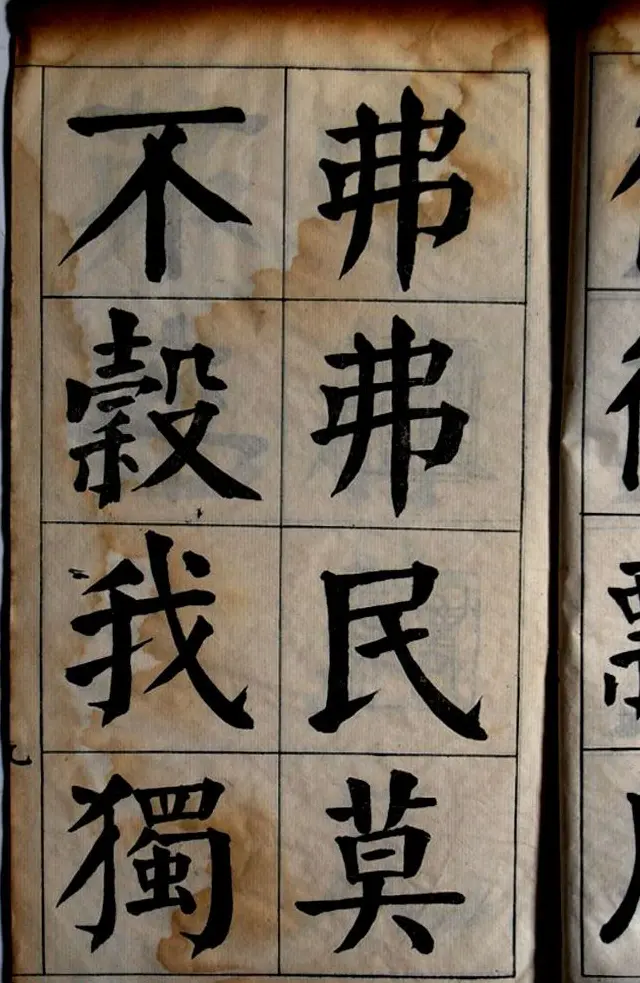 弗弗民莫
不穀我獨